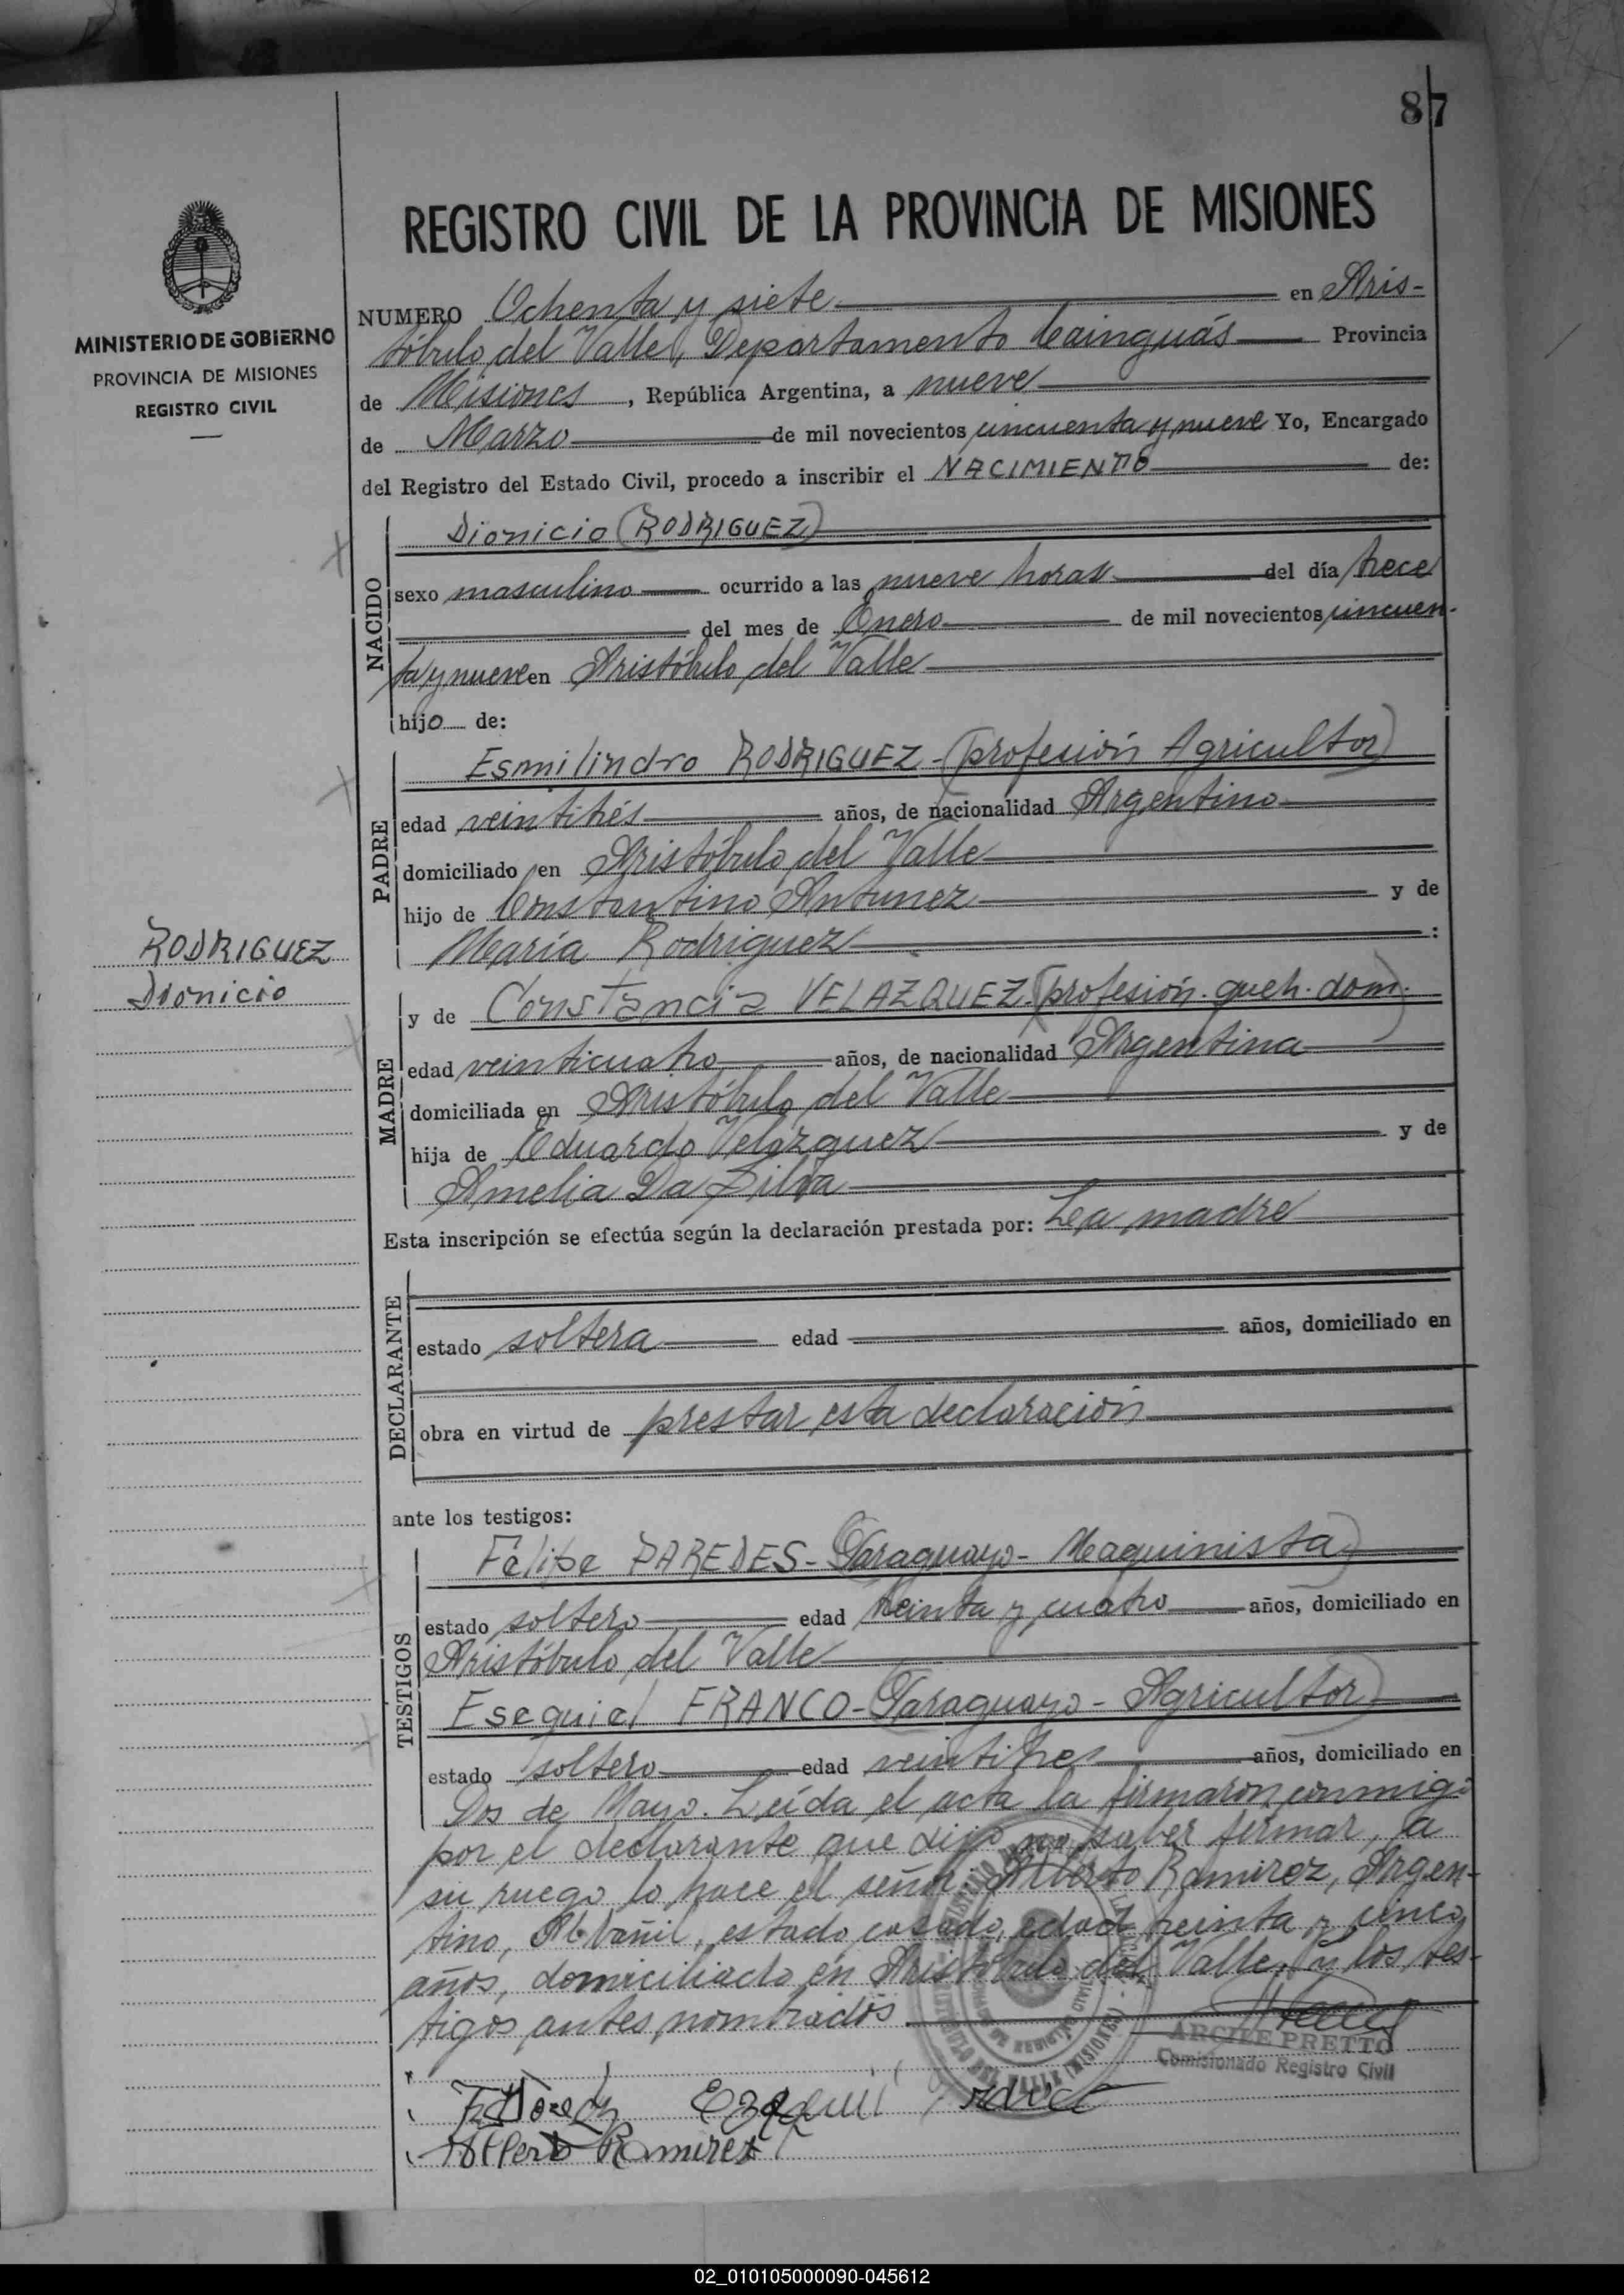 87
MINISTERIO DE GOBIERNO
PROVINCIA DE MISIONES
REGISTRO CIVIL
REGISTRO CIVIL DE LA PROVINCIA DE MISIONES
NUMERO Ochenta y siete en Aris-
tóbulo del Valle, Departamento Cainguás Provincia
de Misiones, República Argentina, a nueve
de Marzo de mil novecientos cincuenta y nueve Yo, Encargado
del Registro del Estado Civil, procedo a inscribir el NACIMIENTO de:
NACIDO
Dionicio (RODRIGUEZ)
sexo masculino ocurrido a las nueve horas del día trece
del mes de Enero de mil novecientos cincuen-
ta y nueve en Aristóbulo del Valle
hijo de:
PADRE
Esmilindro RODRIGUEZ - (profesión Agricultor)
edad veintitrés años, de nacionalidad Argentino
domiciliado en Aristóbulo del Valle
hijo de Constantino Antunez y de
María Rodriguez :
RODRIGUEZ
Dionicio
MADRE
y de Constancia VELAZQUEZ. (profesión. queh. dom.)
edad veinticuatro años, de nacionalidad Argentina
domiciliada en Aristóbulo del Valle
hija de Eduardo Velazquez y de
Amelia Da Silva
Esta inscripción se efectúa según la declaración prestada por: La madre
DECLARANTE
estado soltera edad años, domiciliado en
obra en virtud de prestar esta declaración
ante los testigos:
TESTIGOS
Felipe PAREDES - (Paraguayo - Maquinista)
estado soltero edad treinta y cuatro años, domiciliado en
Aristóbulo del Valle
Esequiel FRANCO - (Paraguayo - Agricultor)
estado soltero edad veintitres años, domiciliado en
Dos de Mayo. Leída el acta la firmaron conmigo
por el declarante que dijo no saber firmar, a
su ruego lo hace el señor: Alberto Ramirez, Argen-
tino, Albañil, estado casado, edad treinta y cinco
años, domiciliado en Aristóbulo del Valle. Y los tes-
tigos antes nombrados
ARCILE PRETTO
Comisionado Registro Civil
Alberto Ramirez
02_010105000090-045612